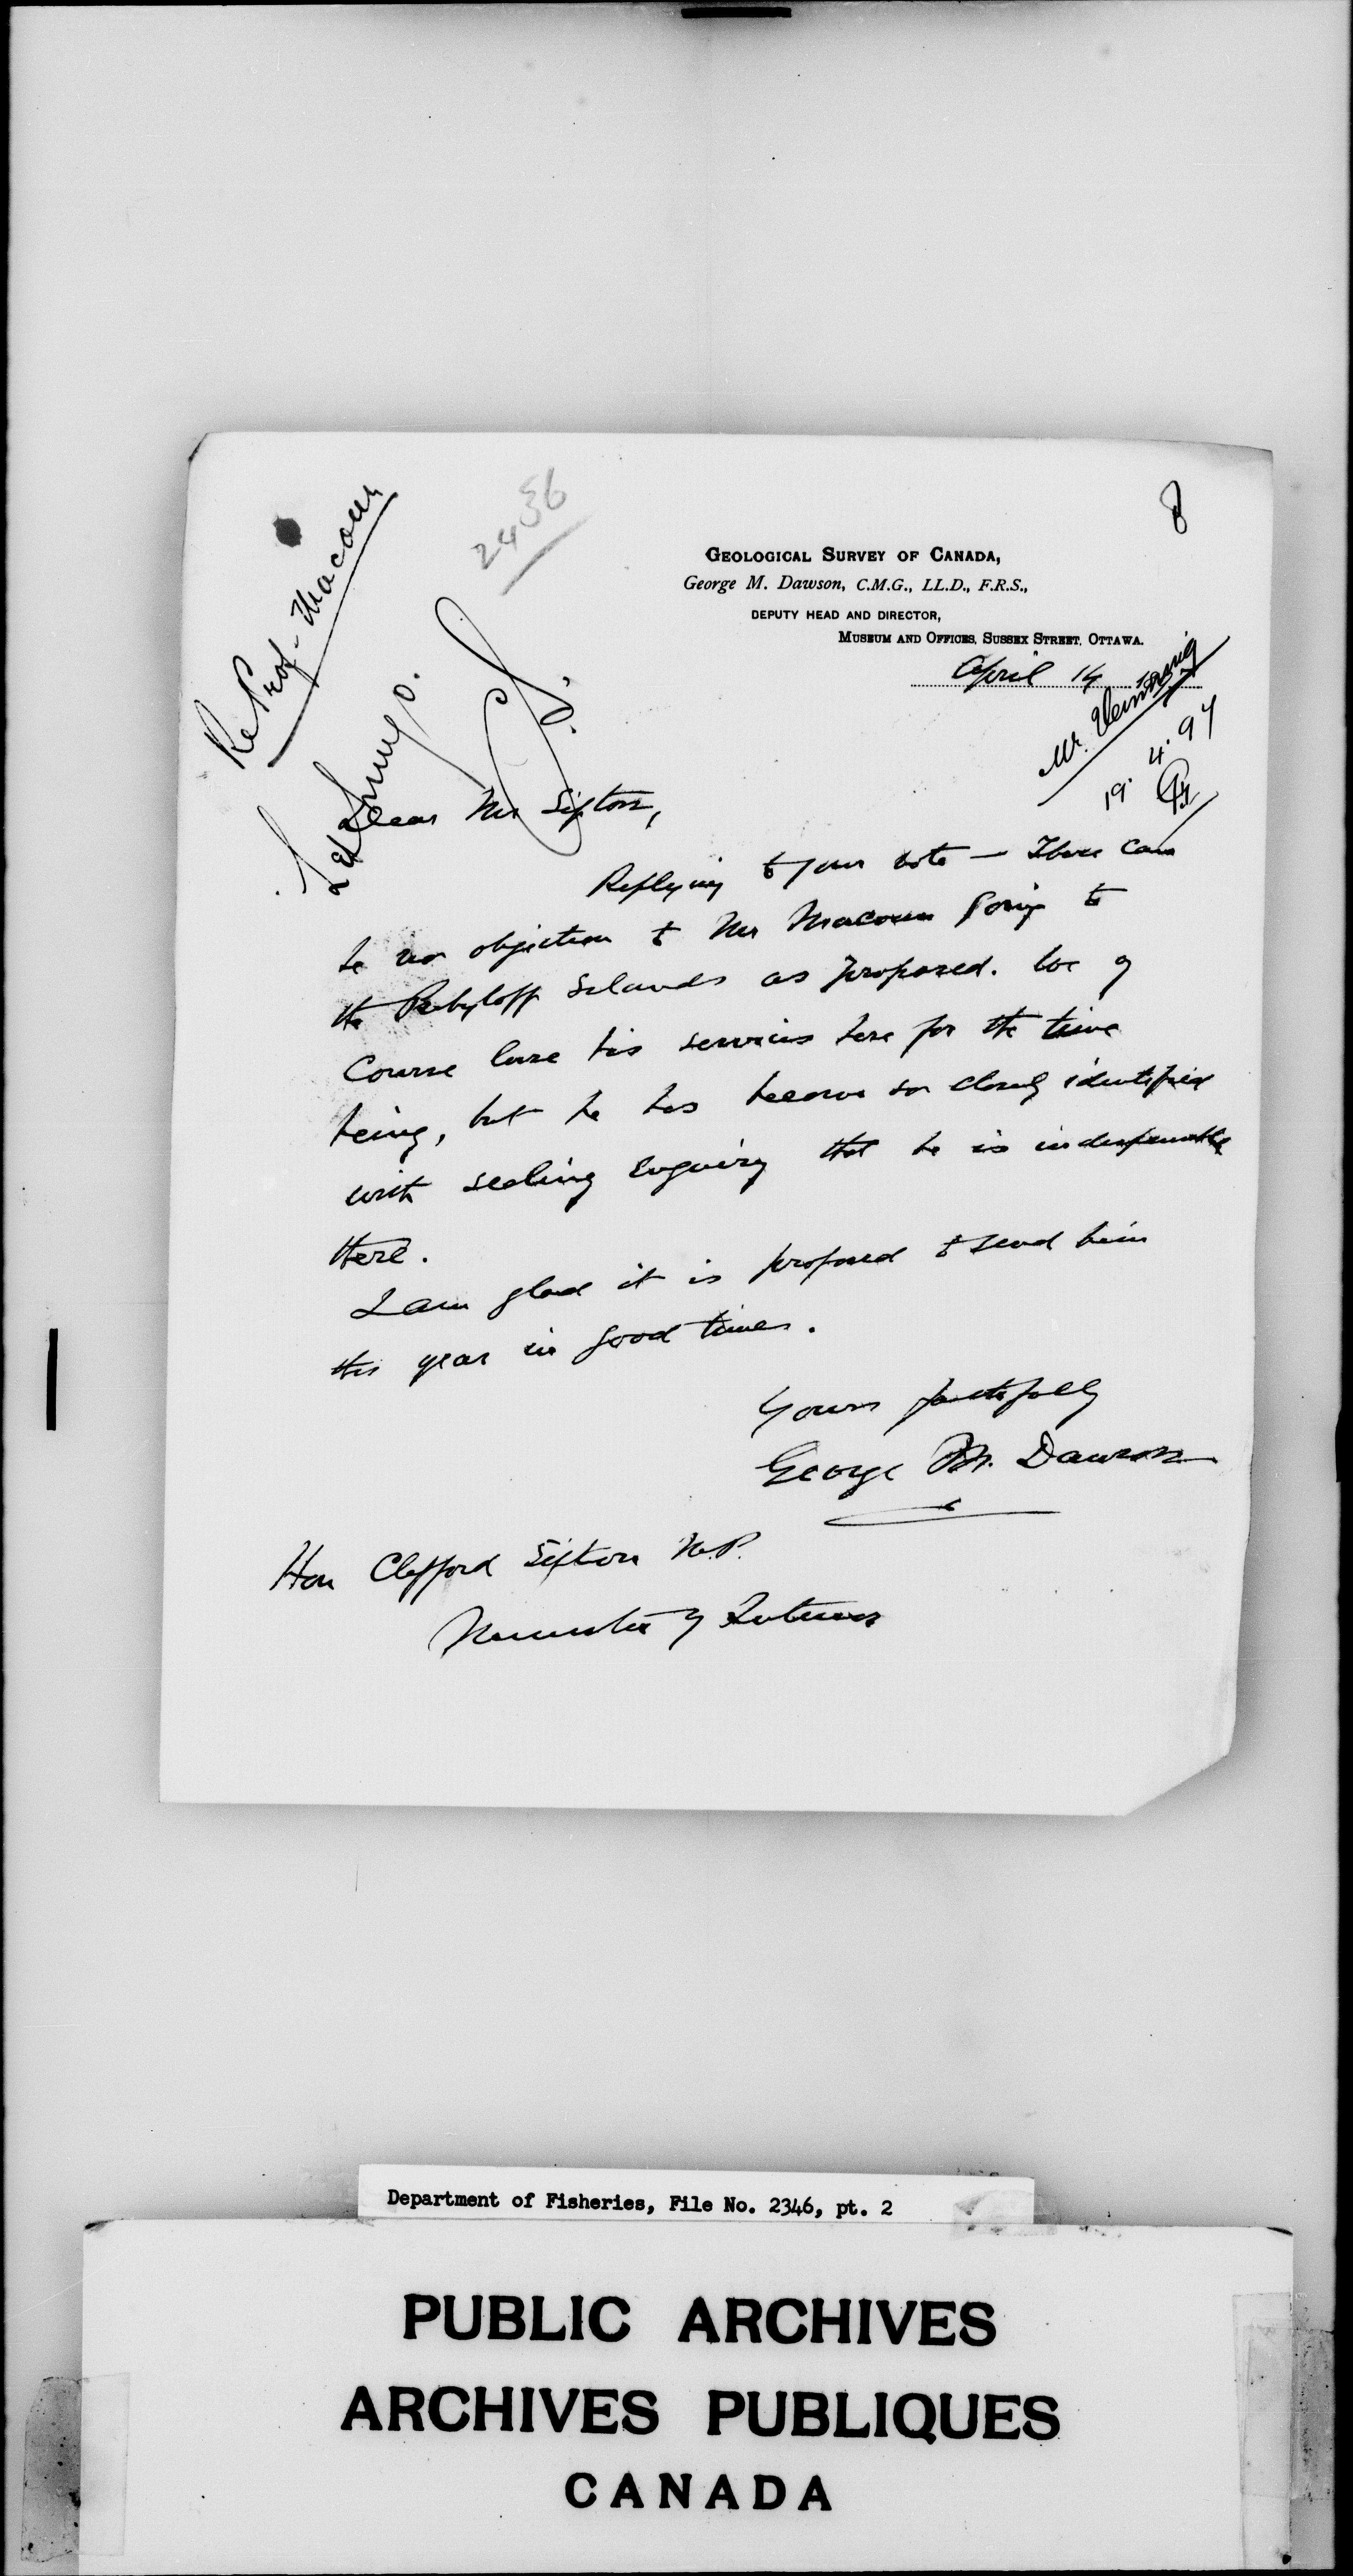 8
2436
Re Prof. Macoun
Let him go.
C.S.
GEOLOGICAL SURVEY OF CANADA,
George M. Dawson, C.M.G., LL.D., F.R.S.,
DEPUTY HEAD AND DIRECTOR,
MUSEUM AND OFFICES, SUSSEX STREET, OTTAWA.
April 14
Mr. Venning
19. 4. 97
Dear Mr Sifton,
Replying to your note — There can
be no objection to Mr Macoun going to
the Pribyloff Islands as proposed. We of
Course lose his services here for the time
being, but he has become so closely identified
with sealing Enquiry that he is indispensable
there.
I am glad it is proposed to send him
this year in good time.
Yours faithfully
George M. Dawson
Hon Clifford Sifton M.P.
Minister of Interior
Department of Fisheries, File No. 2346, pt. 2
PUBLIC ARCHIVES
ARCHIVES PUBLIQUES
CANADA